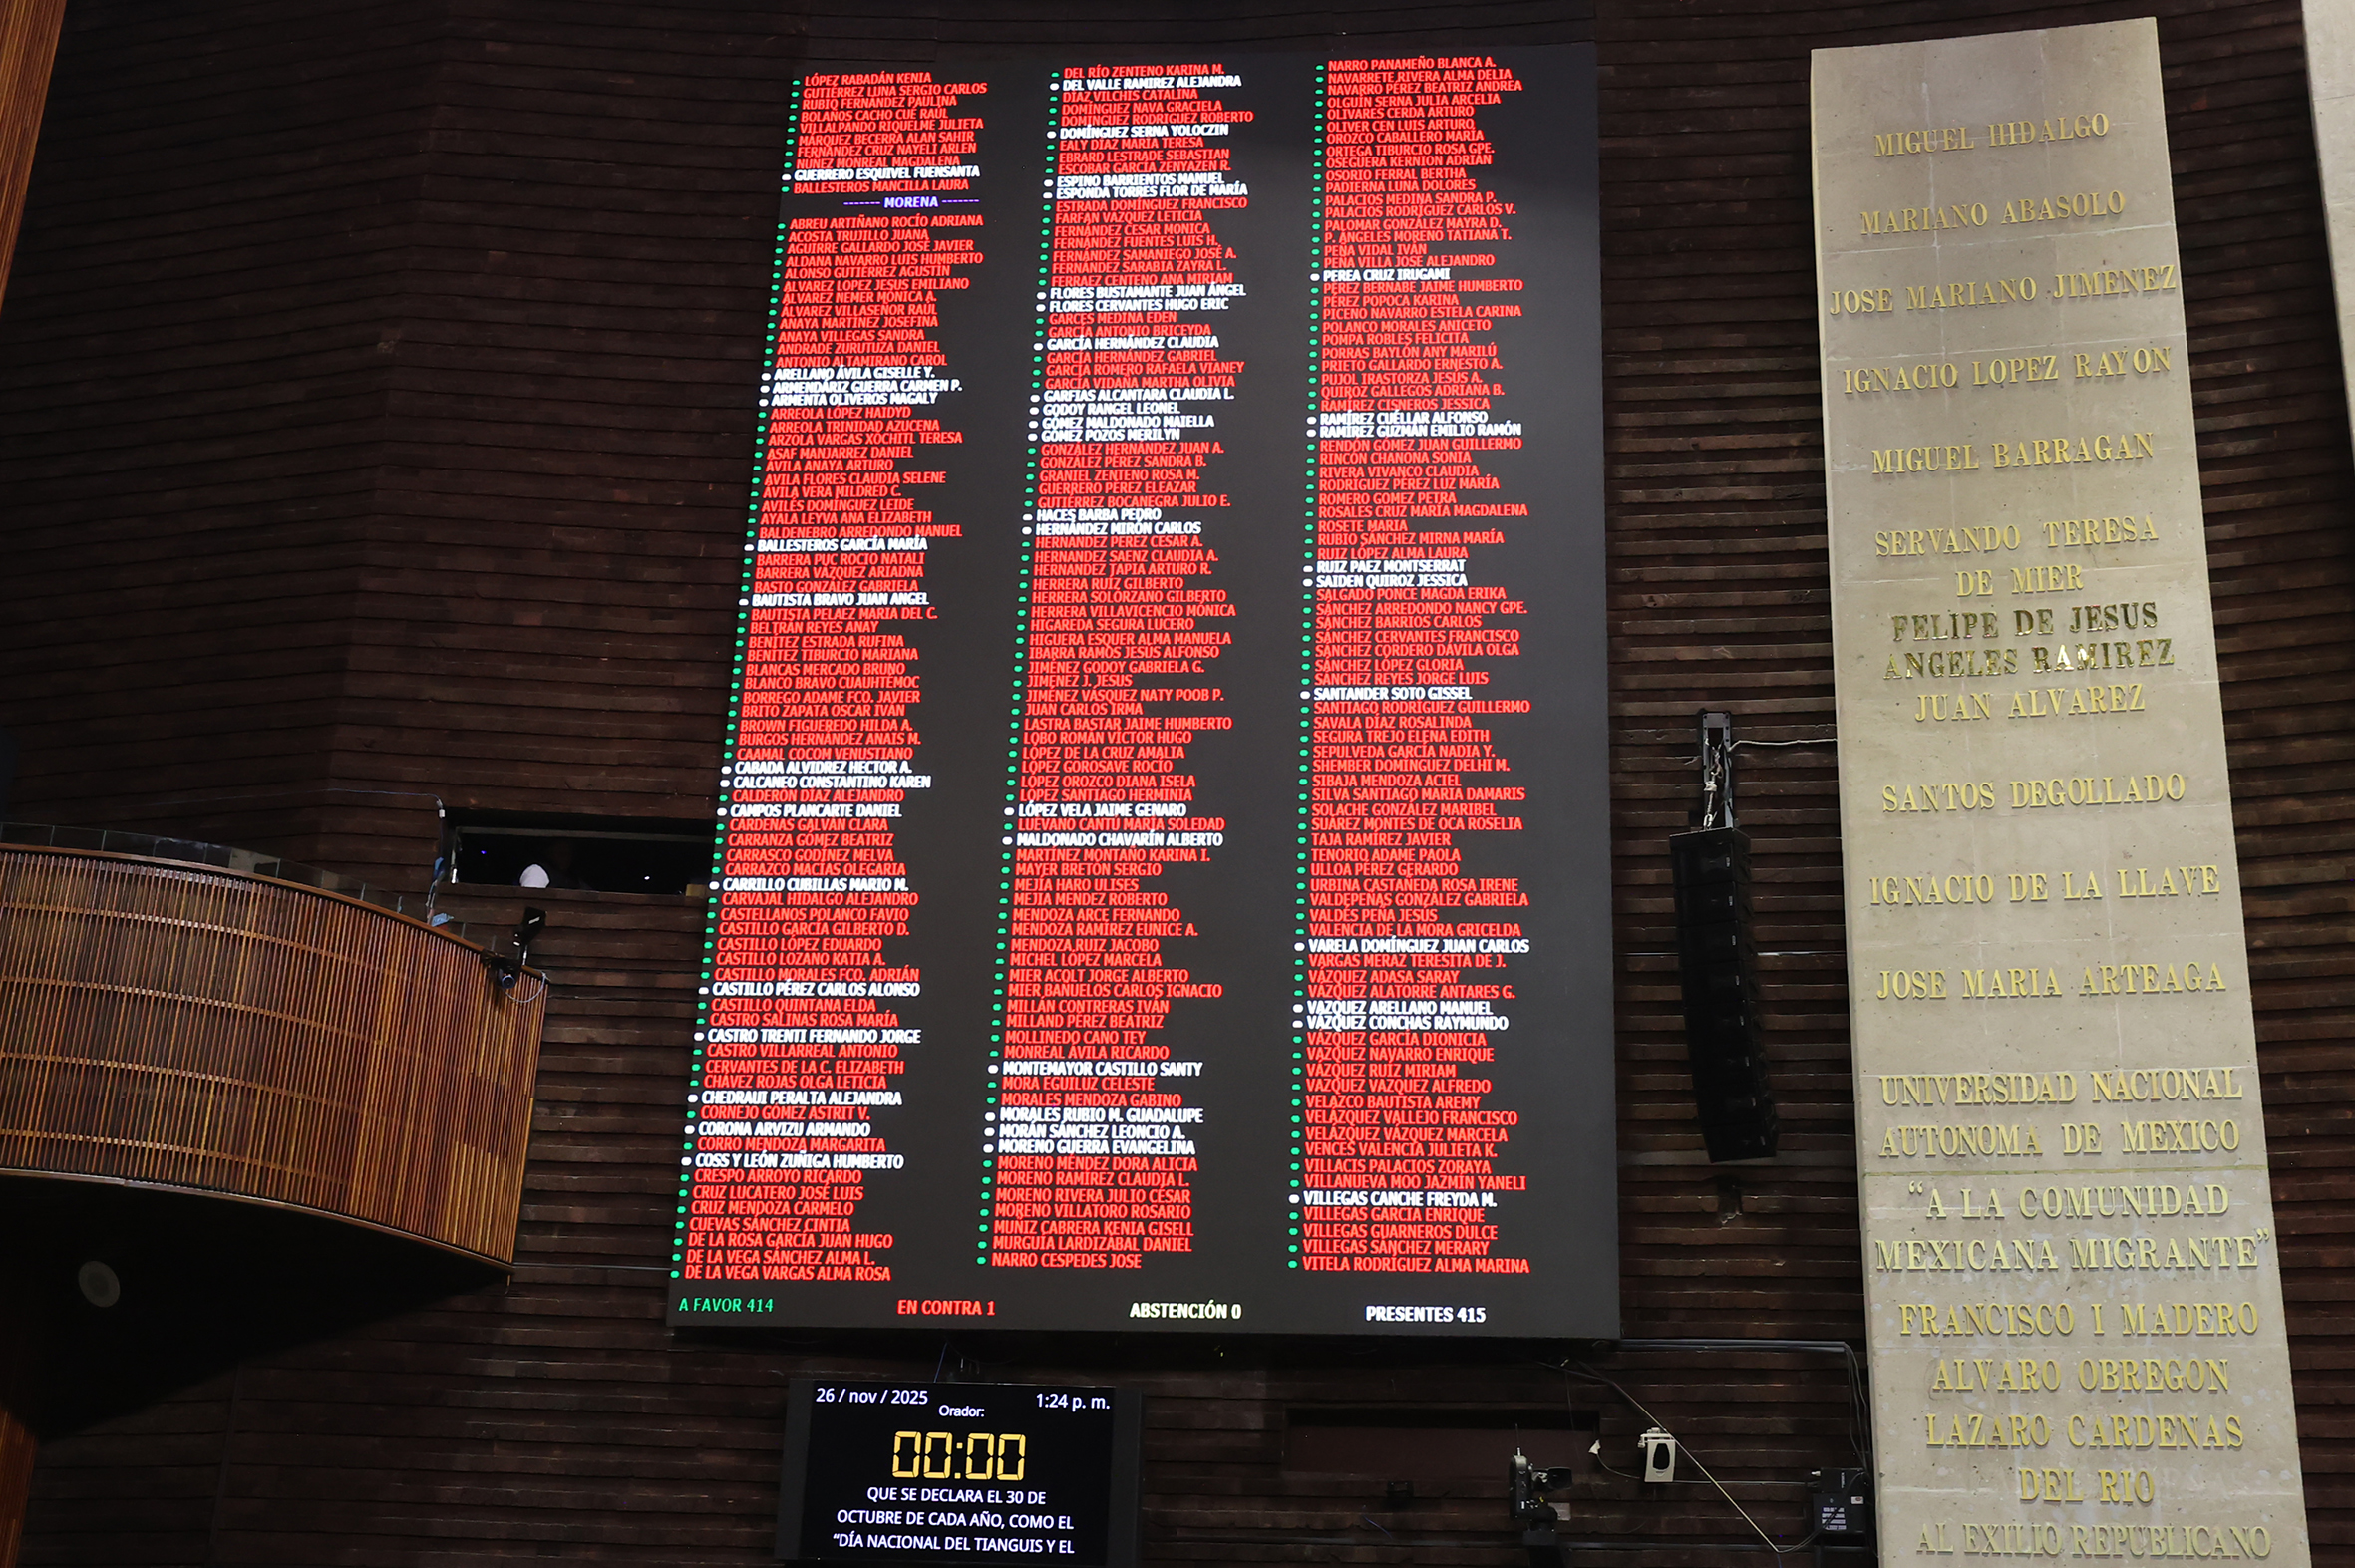 LÓPEZ RABADÁN KENIA
GUTIÉRREZ LUNA SERGIO CARLOS
RUBIO FERNÁNDEZ PAULINA
BOLAÑOS CACHO CUÉ RAÚL
VILLALPANDO RIQUELME JULIETA
MÁRQUEZ BECERRA ALAN SAHIR
FERNÁNDEZ CRUZ NAYELI ARLEN
NÚÑEZ MONREAL MAGDALENA
GUERRERO ESQUIVEL FUENSANTA
BALLESTEROS MANCILLA LAURA
------- MORENA -------
ABREU ARTIÑANO ROCÍO ADRIANA
ACOSTA TRUJILLO JUANA
AGUIRRE GALLARDO JOSÉ JAVIER
ALDANA NAVARRO LUIS HUMBERTO
ALONSO GUTIÉRREZ AGUSTÍN
ÁLVAREZ LÓPEZ JESÚS EMILIANO
ÁLVAREZ NEMER MÓNICA A.
ÁLVAREZ VILLASEÑOR RAÚL
ANAYA MARTÍNEZ JOSEFINA
ANAYA VILLEGAS SANDRA
ANDRADE ZURUTUZA DANIEL
ANTONIO ALTAMIRANO CAROL
ARELLANO ÁVILA GISELLE Y.
ARMENDÁRIZ GUERRA CARMEN P.
ARMENTA OLIVEROS MAGALY
ARREOLA LÓPEZ HAIDYD
ARREOLA TRINIDAD AZUCENA
ARZOLA VARGAS XÓCHITL TERESA
ASAF MANJARREZ DANIEL
ÁVILA ANAYA ARTURO
ÁVILA FLORES CLAUDIA SELENE
ÁVILA VERA MILDRED C.
AVILÉS DOMÍNGUEZ LEIDE
AYALA LEYVA ANA ELIZABETH
BALDENEBRO ARREDONDO MANUEL
BALLESTEROS GARCÍA MARÍA
BARRERA PUC ROCÍO NATALÍ
BARRERA VÁZQUEZ ARIADNA
BASTO GONZÁLEZ GABRIELA
BAUTISTA BRAVO JUAN ÁNGEL
BAUTISTA PELÁEZ MARÍA DEL C.
BELTRÁN REYES ANAY
BENÍTEZ ESTRADA RUFINA
BENÍTEZ TIBURCIO MARIANA
BLANCAS MERCADO BRUNO
BLANCO BRAVO CUAUHTÉMOC
BORREGO ADAME FCO. JAVIER
BRITO ZAPATA OSCAR IVÁN
BROWN FIGUEREDO HILDA A.
BURGOS HERNÁNDEZ ANAIS M.
CAAMAL COCOM VENUSTIANO
CABADA ALVIDREZ HÉCTOR A.
CALCÁNEO CONSTANTINO KAREN
CALDERÓN DÍAZ ALEJANDRO
CAMPOS PLANCARTE DANIEL
CÁRDENAS GALVÁN CLARA
CARRANZA GÓMEZ BEATRIZ
CARRASCO GODÍNEZ MELVA
CARRAZCO MACÍAS OLEGARIA
CARRILLO CUBILLAS MARIO M.
CARVAJAL HIDALGO ALEJANDRO
CASTELLANOS POLANCO FAVIO
CASTILLO GARCÍA GILBERTO D.
CASTILLO LÓPEZ EDUARDO
CASTILLO LOZANO KATIA A.
CASTILLO MORALES FCO. ADRIÁN
CASTILLO PÉREZ CARLOS ALONSO
CASTILLO QUINTANA ELDA
CASTRO SALINAS ROSA MARÍA
CASTRO TRENTI FERNANDO JORGE
CASTRO VILLARREAL ANTONIO
CERVANTES DE LA C. ELIZABETH
CHÁVEZ ROJAS OLGA LETICIA
CHEDRAUI PERALTA ALEJANDRA
CORNEJO GÓMEZ ASTRIT V.
CORONA ARVIZU ARMANDO
CORRO MENDOZA MARGARITA
COSS Y LEÓN ZÚÑIGA HUMBERTO
CRESPO ARROYO RICARDO
CRUZ LUCATERO JOSÉ LUIS
CRUZ MENDOZA CARMELO
CUEVAS SÁNCHEZ CINTIA
DE LA ROSA GARCÍA JUAN HUGO
DE LA VEGA SÁNCHEZ ALMA L.
DE LA VEGA VARGAS ALMA ROSA
DEL RÍO ZENTENO KARINA M.
DEL VALLE RAMÍREZ ALEJANDRA
DÍAZ VILCHIS CATALINA
DOMÍNGUEZ NAVA GRACIELA
DOMÍNGUEZ RODRÍGUEZ ROBERTO
DOMÍNGUEZ SERNA YOLOCZIN
EALY DÍAZ MARÍA TERESA
EBRARD LESTRADE SEBASTIÁN
ESCOBAR GARCÍA ZENYAZEN R.
ESPINO BARRIENTOS MANUEL
ESPONDA TORRES FLOR DE MARÍA
ESTRADA DOMÍNGUEZ FRANCISCO
FARFÁN VÁZQUEZ LETICIA
FERNÁNDEZ CÉSAR MÓNICA
FERNÁNDEZ FUENTES LUIS H.
FERNÁNDEZ SAMANIEGO JOSÉ A.
FERNÁNDEZ SARABIA ZAYRA L.
FERRÁEZ CENTENO ANA MIRIAM
FLORES BUSTAMANTE JUAN ÁNGEL
FLORES CERVANTES HUGO ERIC
GARCÉS MEDINA EDÉN
GARCÍA ANTONIO BRICEYDA
GARCÍA HERNÁNDEZ CLAUDIA
GARCÍA HERNÁNDEZ GABRIEL
GARCÍA ROMERO RAFAELA VIANEY
GARCÍA VIDAÑA MARTHA OLIVIA
GARFIAS ALCÁNTARA CLAUDIA L.
GODOY RANGEL LEONEL
GÓMEZ MALDONADO MAIELLA
GÓMEZ POZOS MERILYN
GONZÁLEZ HERNÁNDEZ JUAN A.
GONZÁLEZ PÉREZ SANDRA B.
GRANIEL ZENTENO ROSA M.
GUERRERO PÉREZ ELEAZAR
GUTIÉRREZ BOCANEGRA JULIO E.
HACES BARBA PEDRO
HERNÁNDEZ MIRÓN CARLOS
HERNÁNDEZ PÉREZ CÉSAR A.
HERNÁNDEZ SÁENZ CLAUDIA A.
HERNÁNDEZ TAPIA ARTURO R.
HERRERA RUÍZ GILBERTO
HERRERA SOLÓRZANO GILBERTO
HERRERA VILLAVICENCIO MÓNICA
HIGAREDA SEGURA LUCERO
HIGUERA ESQUER ALMA MANUELA
IBARRA RAMOS JESÚS ALFONSO
JIMÉNEZ GODOY GABRIELA G.
JIMÉNEZ J. JESÚS
JIMÉNEZ VÁSQUEZ NATY POOB P.
JUAN CARLOS IRMA
LASTRA BASTAR JAIME HUMBERTO
LOBO ROMÁN VÍCTOR HUGO
LÓPEZ DE LA CRUZ AMALIA
LÓPEZ GOROSAVE ROCÍO
LÓPEZ OROZCO DIANA ISELA
LÓPEZ SANTIAGO HERMINIA
LÓPEZ VELA JAIME GENARO
LUÉVANO CANTÚ MARÍA SOLEDAD
MALDONADO CHAVARÍN ALBERTO
MARTÍNEZ MONTAÑO KARINA I.
MAYER BRETÓN SERGIO
MEJÍA HARO ULISES
MEJÍA MÉNDEZ ROBERTO
MENDOZA ARCE FERNANDO
MENDOZA RAMÍREZ EUNICE A.
MENDOZA RUIZ JACOBO
MICHEL LÓPEZ MARCELA
MIER ACOLT JORGE ALBERTO
MIER BAÑUELOS CARLOS IGNACIO
MILLÁN CONTRERAS IVÁN
MILLAND PÉREZ BEATRIZ
MOLLINEDO CANO TEY
MONREAL ÁVILA RICARDO
MONTEMAYOR CASTILLO SANTY
MORA EGUILUZ CELESTE
MORALES MENDOZA GABINO
MORALES RUBIO M. GUADALUPE
MORÁN SÁNCHEZ LEONCIO A.
MORENO GUERRA EVANGELINA
MORENO MÉNDEZ DORA ALICIA
MORENO RAMÍREZ CLAUDIA L.
MORENO RIVERA JULIO CÉSAR
MORENO VILLATORO ROSARIO
MUÑIZ CABRERA KENIA GISELL
MURGUÍA LARDIZÁBAL DANIEL
NARRO CÉSPEDES JOSÉ
NARRO PANAMEÑO BLANCA A.
NAVARRETE RIVERA ALMA DELIA
NAVARRO PÉREZ BEATRIZ ANDREA
OLGUÍN SERNA JULIA ARCELIA
OLIVARES CERDA ARTURO
OLIVER CEN LUIS ARTURO
OROZCO CABALLERO MARÍA
ORTEGA TIBURCIO ROSA GPE.
OSEGUERA KERNION ADRIÁN
OSORIO FERRAL BERTHA
PADIERNA LUNA DOLORES
PALACIOS MEDINA SANDRA P.
PALACIOS RODRÍGUEZ CARLOS V.
PALOMAR GONZÁLEZ MAYRA D.
P. ÁNGELES MORENO TATIANA T.
PEÑA VIDAL IVÁN
PEÑA VILLA JOSÉ ALEJANDRO
PEREA CRUZ IRUGAMI
PÉREZ BERNABÉ JAIME HUMBERTO
PÉREZ POPOCA KARINA
PICENO NAVARRO ESTELA CARINA
POLANCO MORALES ANICETO
POMPA ROBLES FELÍCITA
PORRAS BAYLÓN ANY MARILÚ
PRIETO GALLARDO ERNESTO A.
PUJOL IRASTORZA JESÚS A.
QUIROZ GALLEGOS ADRIANA B.
RAMÍREZ CISNEROS JESSICA
RAMÍREZ CUÉLLAR ALFONSO
RAMÍREZ GUZMÁN EMILIO RAMÓN
RENDÓN GÓMEZ JUAN GUILLERMO
RINCÓN CHANONA SONIA
RIVERA VIVANCO CLAUDIA
RODRÍGUEZ PÉREZ LUZ MARÍA
ROMERO GÓMEZ PETRA
ROSALES CRUZ MARÍA MAGDALENA
ROSETE MARIA
RUBIO SÁNCHEZ MIRNA MARÍA
RUIZ LÓPEZ ALMA LAURA
RUIZ PÁEZ MONTSERRAT
SAIDEN QUIROZ JESSICA
SALGADO PONCE MAGDA ERIKA
SÁNCHEZ ARREDONDO NANCY GPE.
SÁNCHEZ BARRIOS CARLOS
SÁNCHEZ CERVANTES FRANCISCO
SÁNCHEZ CORDERO DÁVILA OLGA
SÁNCHEZ LÓPEZ GLORIA
SÁNCHEZ REYES JORGE LUIS
SANTANDER SOTO GISSEL
SANTIAGO RODRÍGUEZ GUILLERMO
SAVALA DÍAZ ROSALINDA
SEGURA TREJO ELENA EDITH
SEPÚLVEDA GARCÍA NADIA Y.
SHEMBER DOMÍNGUEZ DELHI M.
SIBAJA MENDOZA ACIEL
SILVA SANTIAGO MARÍA DAMARIS
SOLACHE GONZÁLEZ MARIBEL
SUÁREZ MONTES DE OCA ROSELIA
TAJA RAMÍREZ JAVIER
TENORIO ADAME PAOLA
ULLOA PÉREZ GERARDO
URBINA CASTAÑEDA ROSA IRENE
VALDEPEÑAS GONZÁLEZ GABRIELA
VALDÉS PEÑA JESÚS
VALENCIA DE LA MORA GRICELDA
VARELA DOMÍNGUEZ JUAN CARLOS
VARGAS MERAZ TERESITA DE J.
VÁZQUEZ ADASA SARAY
VÁZQUEZ ALATORRE ANTARES G.
VÁZQUEZ ARELLANO MANUEL
VÁZQUEZ CONCHAS RAYMUNDO
VÁZQUEZ GARCÍA DIONICIA
VÁZQUEZ NAVARRO ENRIQUE
VÁZQUEZ RUIZ MIRIAM
VÁZQUEZ VÁZQUEZ ALFREDO
VELAZCO BAUTISTA AREMY
VELÁZQUEZ VALLEJO FRANCISCO
VELÁZQUEZ VÁZQUEZ MARCELA
VENCES VALENCIA JULIETA K.
VILLACIS PALACIOS ZORAYA
VILLANUEVA MOO JAZMÍN YANELI
VILLEGAS CANCHÉ FREYDA M.
VILLEGAS GARCÍA ENRIQUE
VILLEGAS GUARNEROS DULCE
VILLEGAS SÁNCHEZ MERARY
VITELA RODRÍGUEZ ALMA MARINA
A FAVOR 414 EN CONTRA 1 ABSTENCIÓN 0 PRESENTES 415
26 / nov / 2025 1:24 p. m.
Orador:
00:00
QUE SE DECLARA EL 30 DE
OCTUBRE DE CADA AÑO, COMO EL
“DÍA NACIONAL DEL TIANGUIS Y EL
MIGUEL HIDALGO
MARIANO ABASOLO
JOSE MARIANO JIMENEZ
IGNACIO LOPEZ RAYON
MIGUEL BARRAGAN
SERVANDO TERESA
DE MIER
FELIPE DE JESUS
ANGELES RAMIREZ
JUAN ALVAREZ
SANTOS DEGOLLADO
IGNACIO DE LA LLAVE
JOSE MARIA ARTEAGA
UNIVERSIDAD NACIONAL
AUTONOMA DE MEXICO
“A LA COMUNIDAD
MEXICANA MIGRANTE”
FRANCISCO I MADERO
ALVARO OBREGON
LAZARO CARDENAS
DEL RIO
AL EXILIO REPUBLICANO